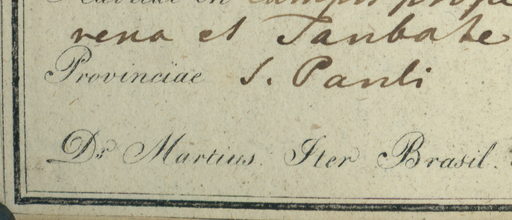 Habitat in campis prope
rena et Taubate
Provinciae S. Pauli
Dr. Martius Iter Brasil.